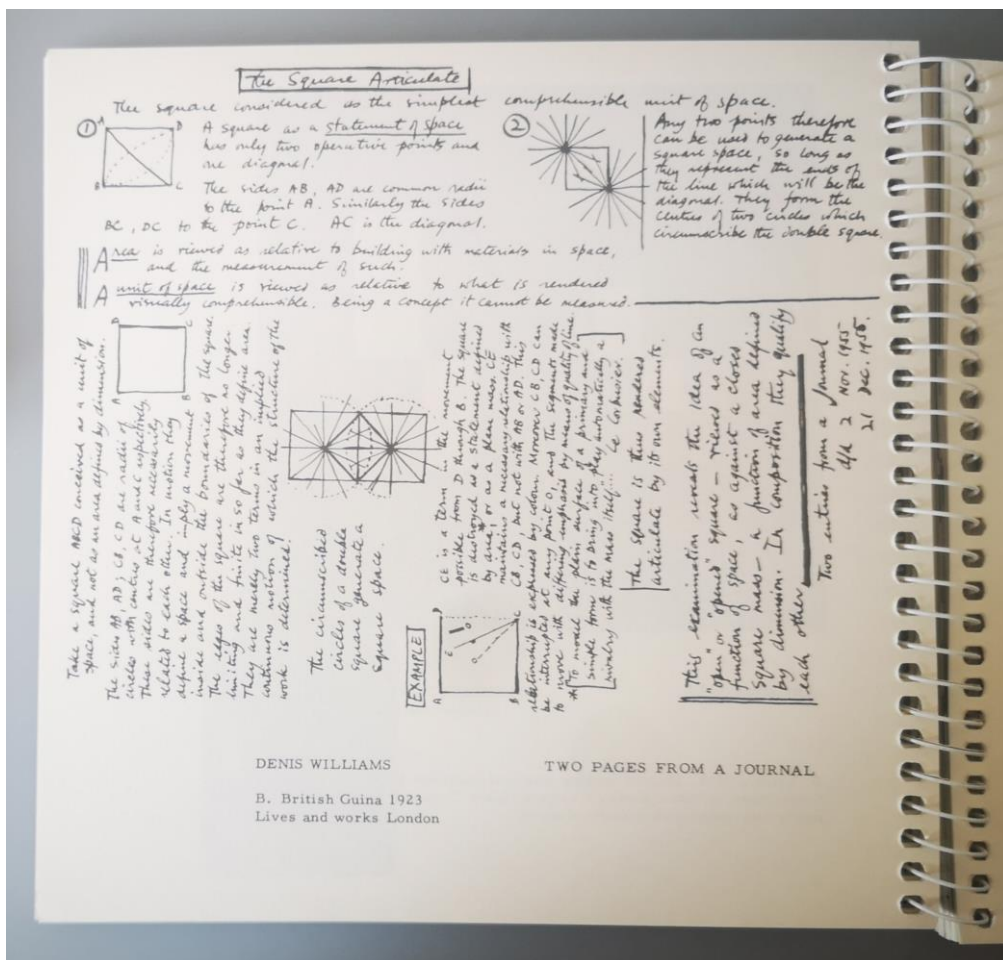 The Square Articulate
The square considered as the simplest comprehensible unit of space.
1
A D
B C
A square as a statement of space
has only two operative points and
one diagonal.
The sides AB, AD are common radii
to the point A. Similarly the sides
BC, DC to the point C. AC is the diagonal.
2
Any two points therefore
can be used to generate a
square space, so long as
they represent the ends of
the line which will be the
diagonal. They form the
centres of two circles which
circumscribe the double square.
Area is viewed as relative to building with materials in space,
and the measurement of such.
A unit of space is viewed as relative to what is rendered
visually comprehensible. Being a concept it cannot be measured.
Take a square ABCD conceived as a unit of
space, and not as an area defined by dimension.
D C
A B
The sides AB, AD; CB, CD are radii of
circles with centres at A and C respectively.
These sides are therefore necessarily
related to each other. In motion they
define a space and imply a movement
inside and outside the boundaries of the square.
The edges of the square are therefore no longer
limiting and finite in so far as they define area.
They are merely two terms in an implied
continuous motion of which the structure of the
work is determined!
The circumscribed
circles of a double
square generate a
square space.
EXAMPLE
A D
B
E
O
CE is a term in the movement
possible from D through B. The square
is destroyed as a statement defined
by area, or as a plane unless CE
maintains a necessary relationship with
CB, CD, but not with AB or AD. This
relationship is expressed by colour. Moreover CB, CD can
be interrupted at any point O, and the segments made
to move with differing emphasis by means of quality of line.
To model the plain surface of a primary and
simple form is to bring into play automatically a
rivalry with the mass itself... Le Corbusier.
The square is thus rendered
articulate by its own elements.
This examination reveals the idea of an
"open" or "opened" square — viewed as a
function of space, as against a closed
square mass — a function of area defined
by dimension. In composition they qualify
each other
Two entries from a Journal
dtd 2 Nov. 1955
21 Dec. 1955.
DENIS WILLIAMS
TWO PAGES FROM A JOURNAL
B. British Guina 1923
Lives and works London